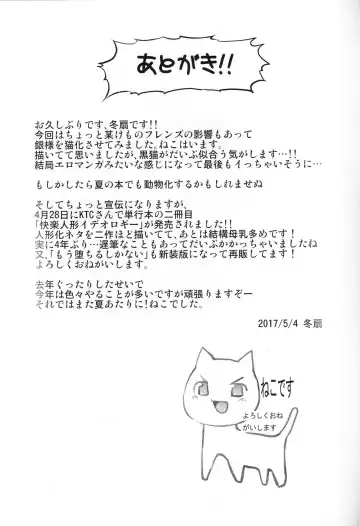 あとがき!!
お久しぶりです、冬扇です!!
今回はちょっと某けものフレンズの影響もあって
銀様を猫化させてみました。ねこはいます。
描いてて思いましたが、黒猫がだいぶ似合う気がします…!!
結局エロマンガみたいな感じになって最後もイッちゃいそうに…
もしかしたら夏の本でも動物化するかもしれませぬ
そしてちょっと宣伝になりますが、
4月28日にKTCさんで単行本の二冊目
「快楽人形イデオロギー」が発売されました!!
人形化ネタを二作ほど描いてて、あとは結構母乳多めです!
実に4年ぶり…遅筆なこともあってだいぶかかっちゃいましたね
又、「もう堕ちるしかない」も新装版になって再販してます!
よろしくおねがいします。
去年ぐったりしたせいで
今年は色々やることが多いですが頑張りますぞー
それではまた夏あたりに!ねこでした。
2017/5/4 冬扇
ねこです
よろしくおね
がいします